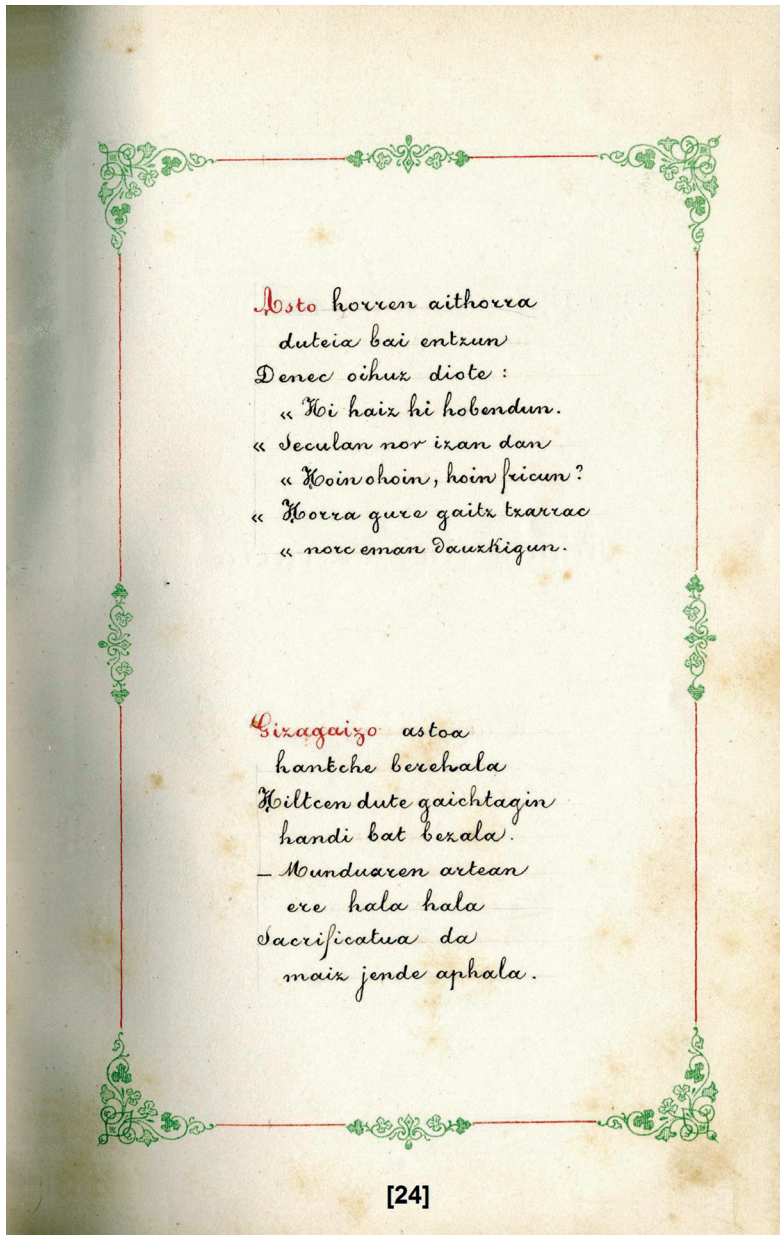 Asto horren aithorra
duteia bai entzun
Denec oihuz diote :
« Hi haiz hi hobendun.
« Seculan nor izan dan
« Hoin ohoin, hoin fricun ?
« Horra gure gaitz tzarrac
« norc eman dauzkigun.
Gizagaizo astoa
hantche berehala
Hiltcen dute gaichtagin
handi bat bezala.
– Munduaren artean
ere hala hala
Sacrificatua da
maiz jende aphala.
[24]